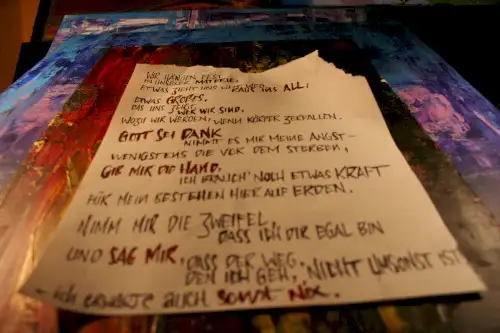 WIR HÄNGEN FEST
IN UNSERER MATERIE,
ETWAS ZIEHT UND DAS ALL:
ETWAS GROẞES,
DAS UNS ZEIGT, WER WIR SIND.
WOZU WIR WERDEN, WENN KÖRPER ZERFALLEN.
GOTT SEI DANK
NIMMT ES MIR MEINE ANGST –
WENIGSTENS DIE VOR DEM STERBEN,
GIB MIR DIE HAND,
ICH BRAUCH' NOCH ETWAS KRAFT
FÜR MEIN BESTEHEN HIER AUF ERDEN.
NIMM MIR DIE ZWEIFEL,
DASS ICH DIR EGAL BIN
UND SAG MIR, DASS DER WEG,
DEN ICH GEH', NICHT UMSONST IST
– ICH ERWARTE AUCH SONST NIX.